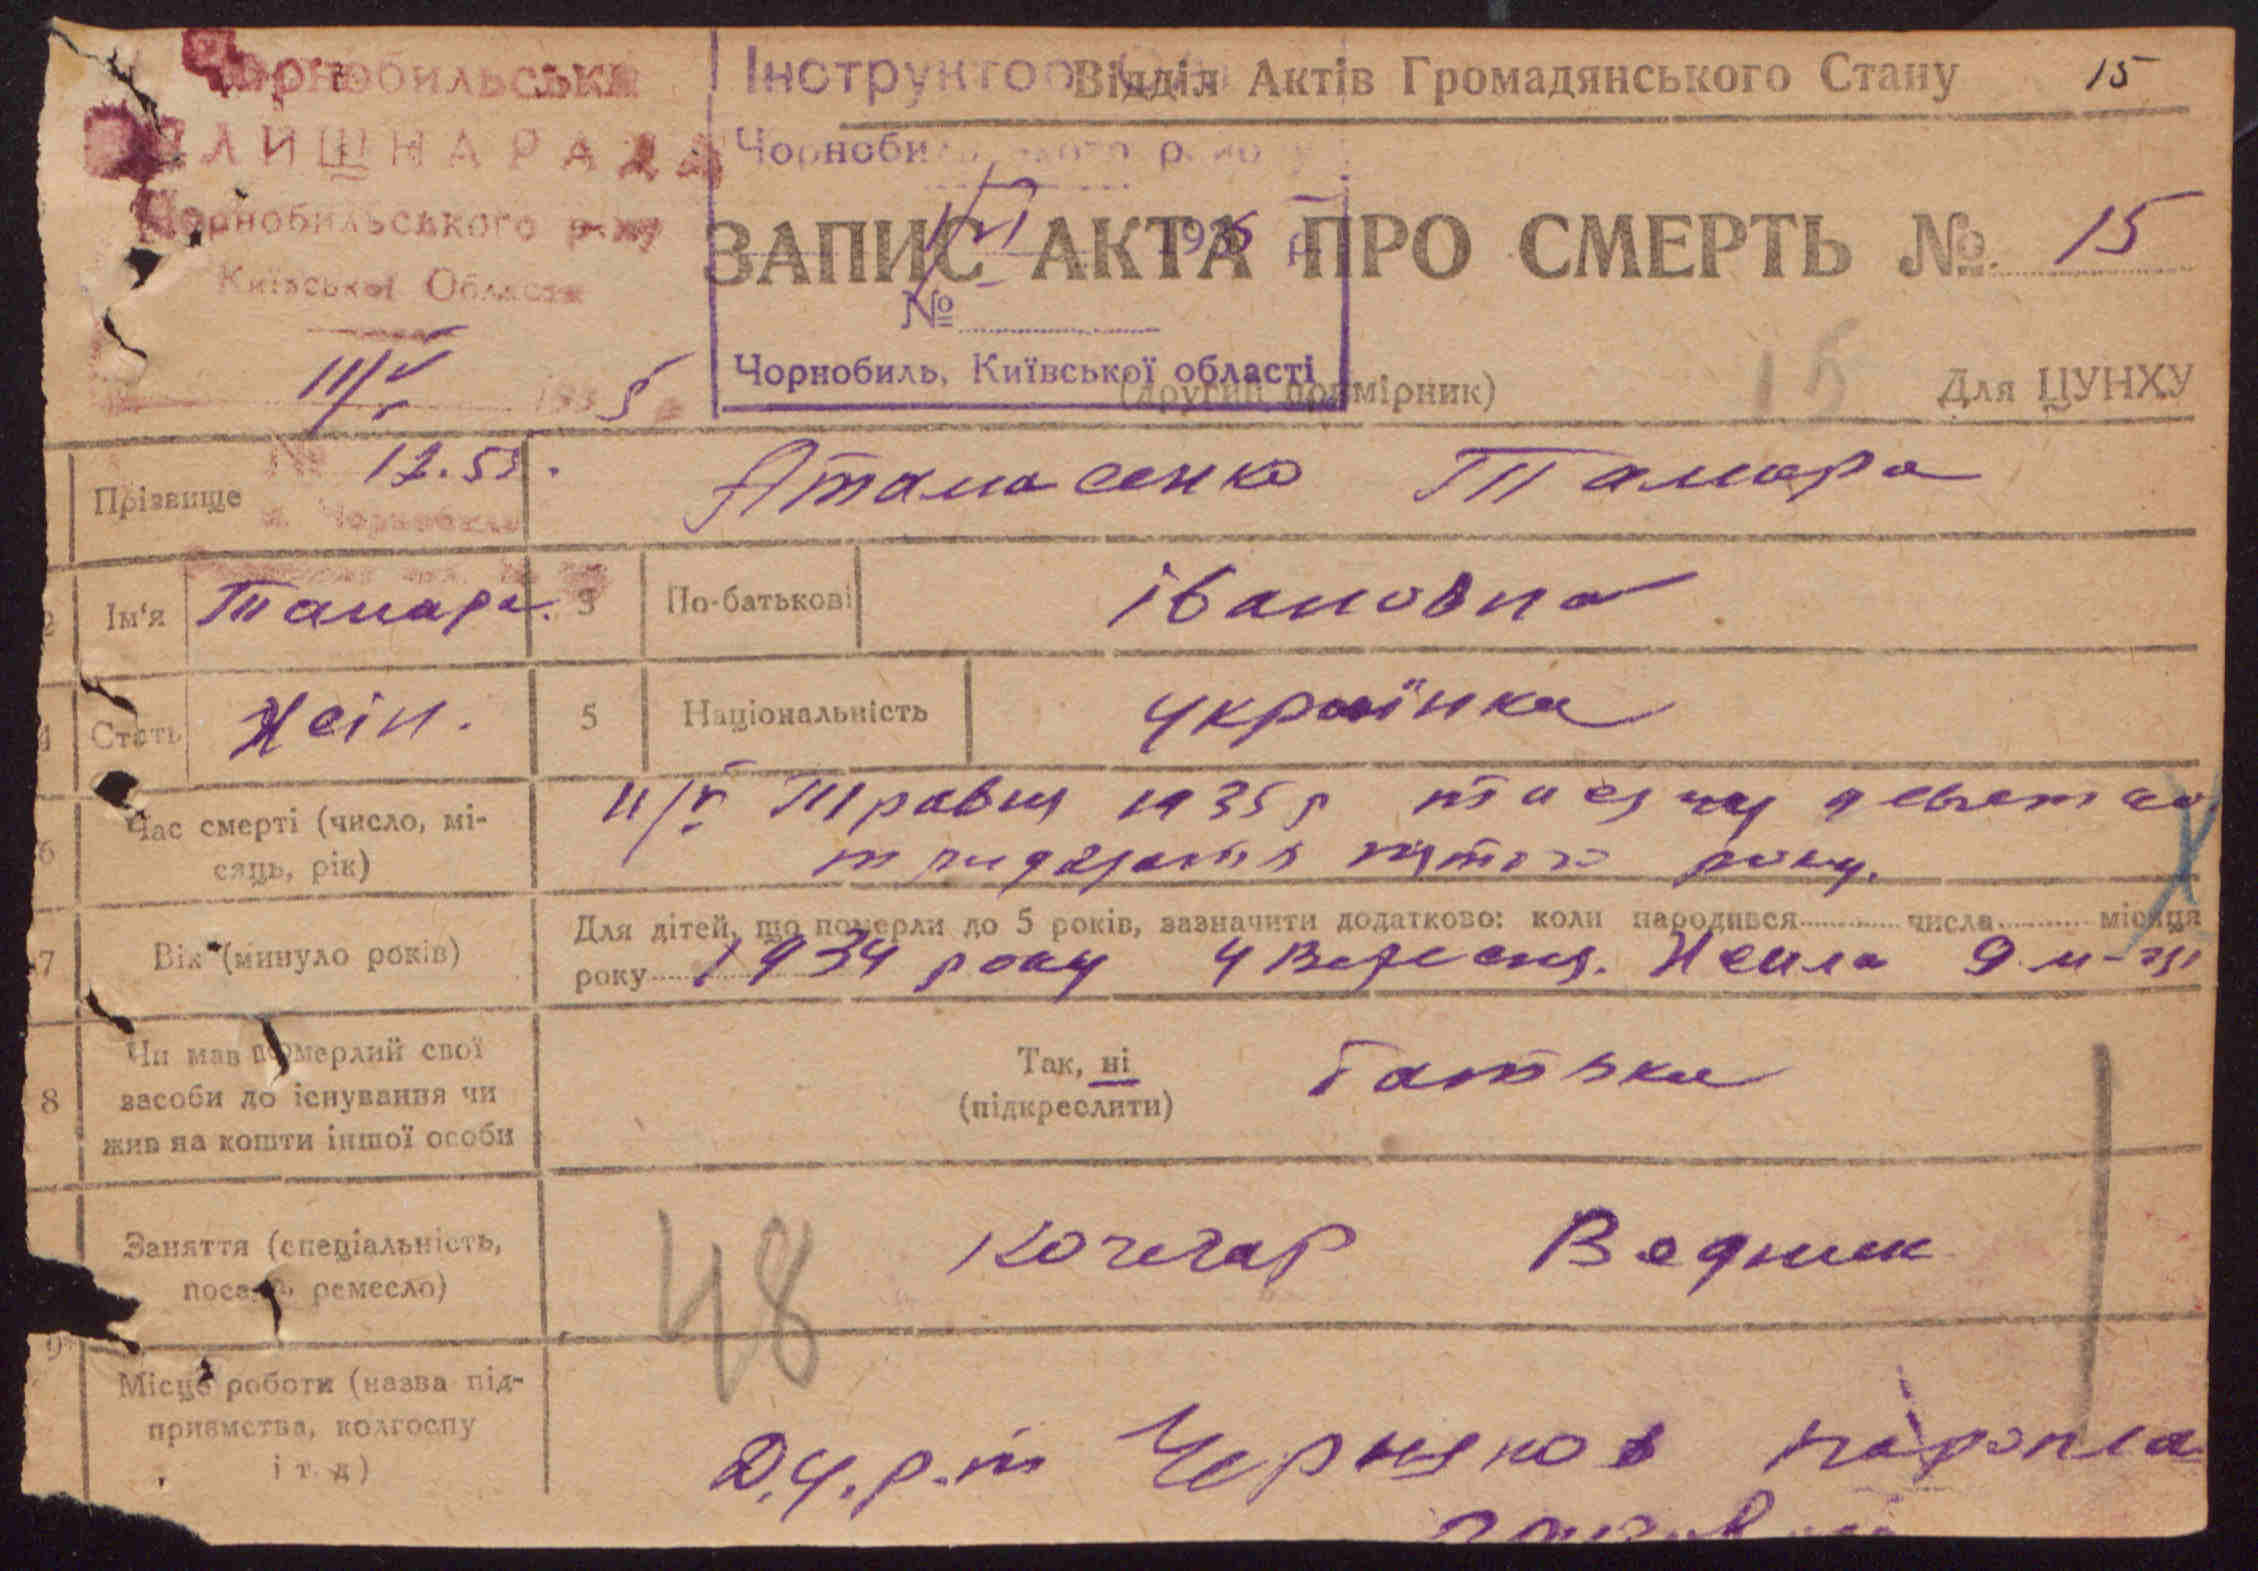 Чорнобильська
СЕЛИЩНА РАДА
Чорнобильського р-ну
Київської Області
11/V 1935
№ 12.53.
м. Чорнобиль
Інструктор
Чорнобильського району
1935 р.
№
Чорнобиль, Київської області
Відділ Актів Громадянського Стану 15
ЗАПИС АКТА ПРО СМЕРТЬ № 15
(другий примірник) 15 Для ЦУНХУ
Прізвище Атамасенко Тамара
2 Ім'я Тамара. 3 По-батькові Івановна
4 Стать Жін. 5 Національність українка
6 Час смерті (число, мі-
сяць, рік)
11/V Травня 1935 р тисячу девятсо
тридцять пятого року.
7 Вік (минуло років)
Для дітей, що померли до 5 років, зазначити додатково: коли народився числа місяця
року 1934 року 4 Вересня. Жила 9 м-ців
8 Чи мав померлий свої
засоби до існування чи
жив на кошти іншої особи
Так, ні
(підкреслити)
батька
9 Заняття (спеціальність,
посада, ремесло)
48 Кочегар Водник
Місце роботи (назва під-
приємства, колгоспу
і т. д)
Д.У.р.п Черняков паропла